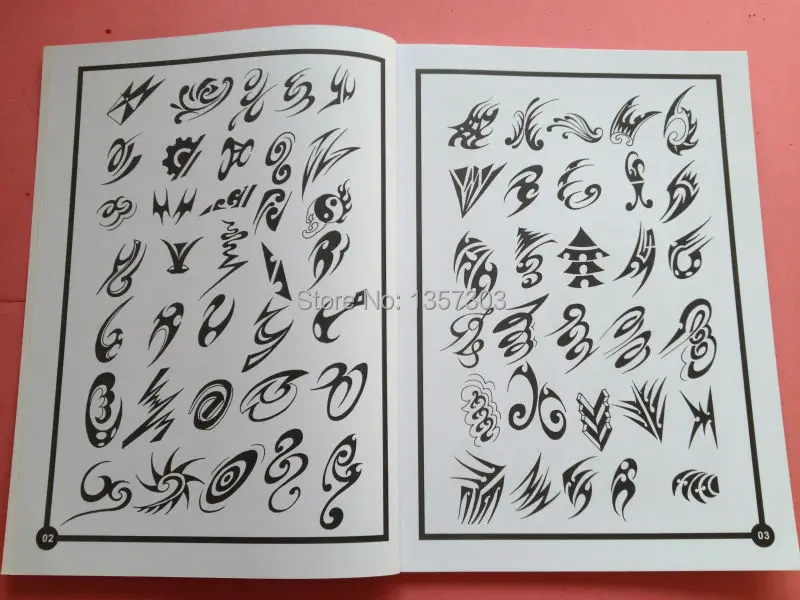 Store No: 1357303
02
03